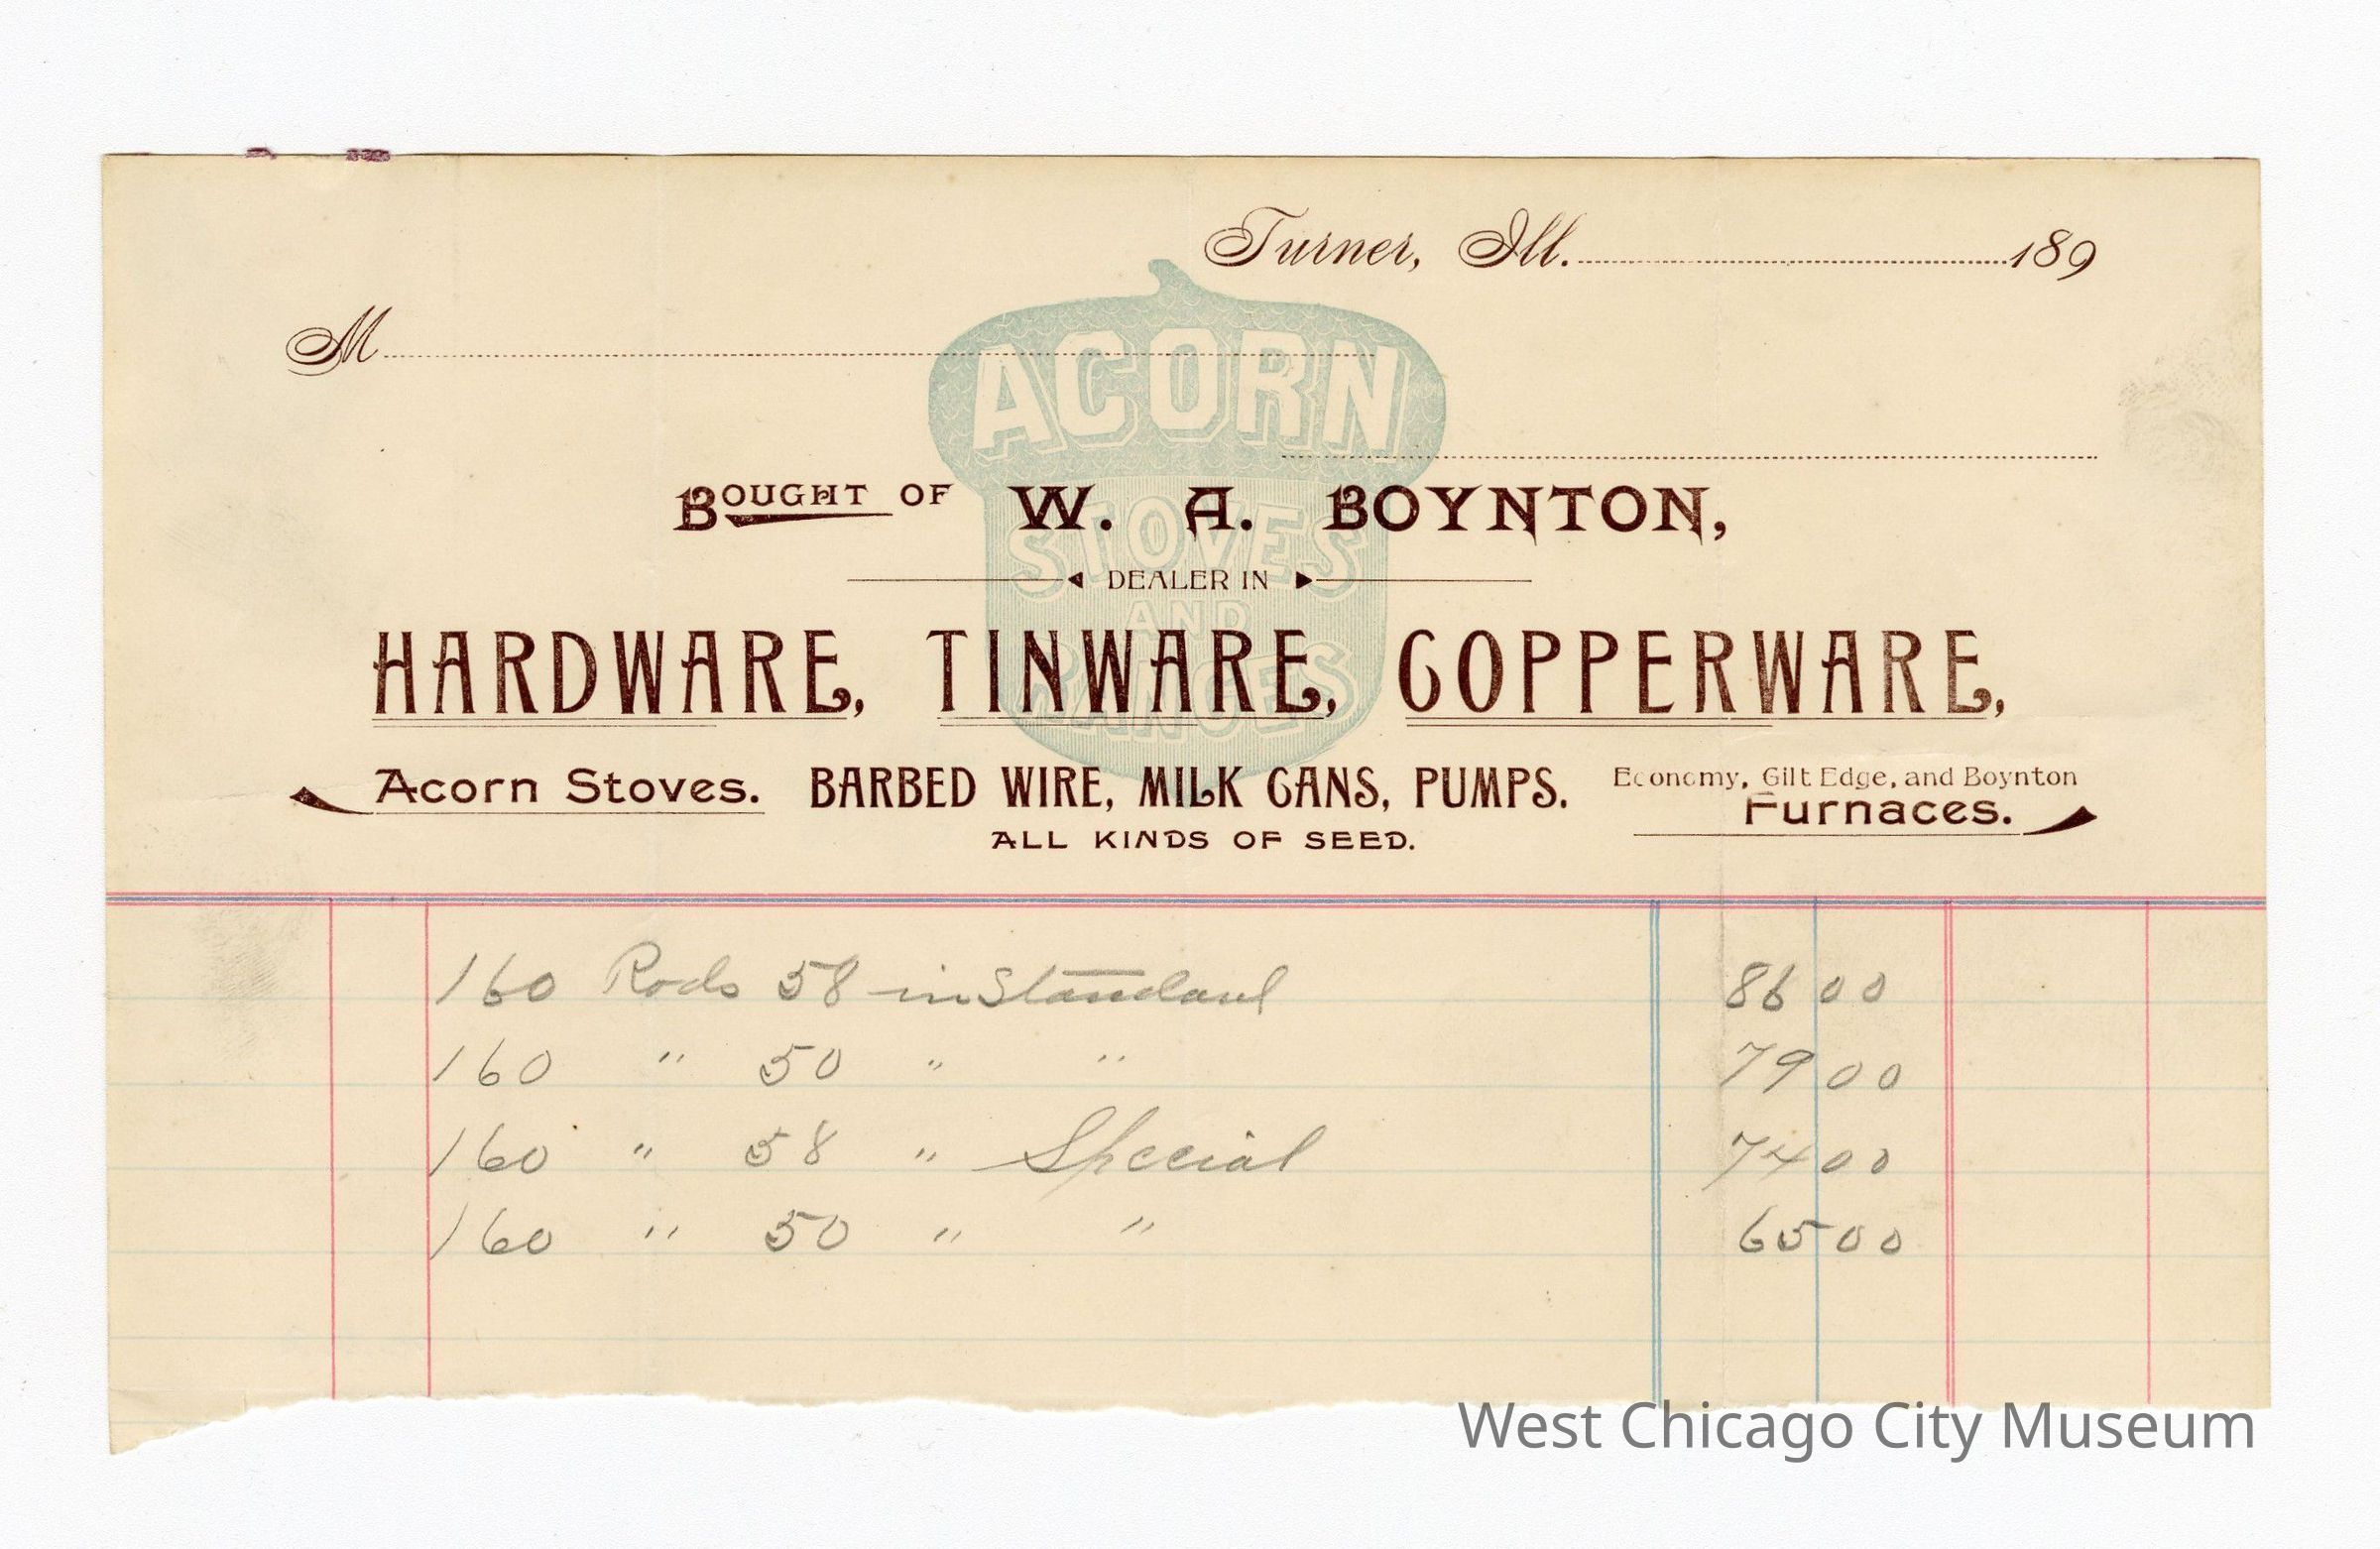 Turner, Ill. 189
M
ACORN
STOVES
AND
RANGES
BOUGHT OF W. A. BOYNTON,
DEALER IN
HARDWARE, TINWARE, COPPERWARE,
Acorn Stoves. BARBED WIRE, MILK CANS, PUMPS. Economy, Gilt Edge, and Boynton
Furnaces.
ALL KINDS OF SEED.
160 Rods 58 in Standard 86 00
160 " 50 " " 79 00
160 " 58 " Special 74 00
160 " 50 " " 65 00
West Chicago City Museum